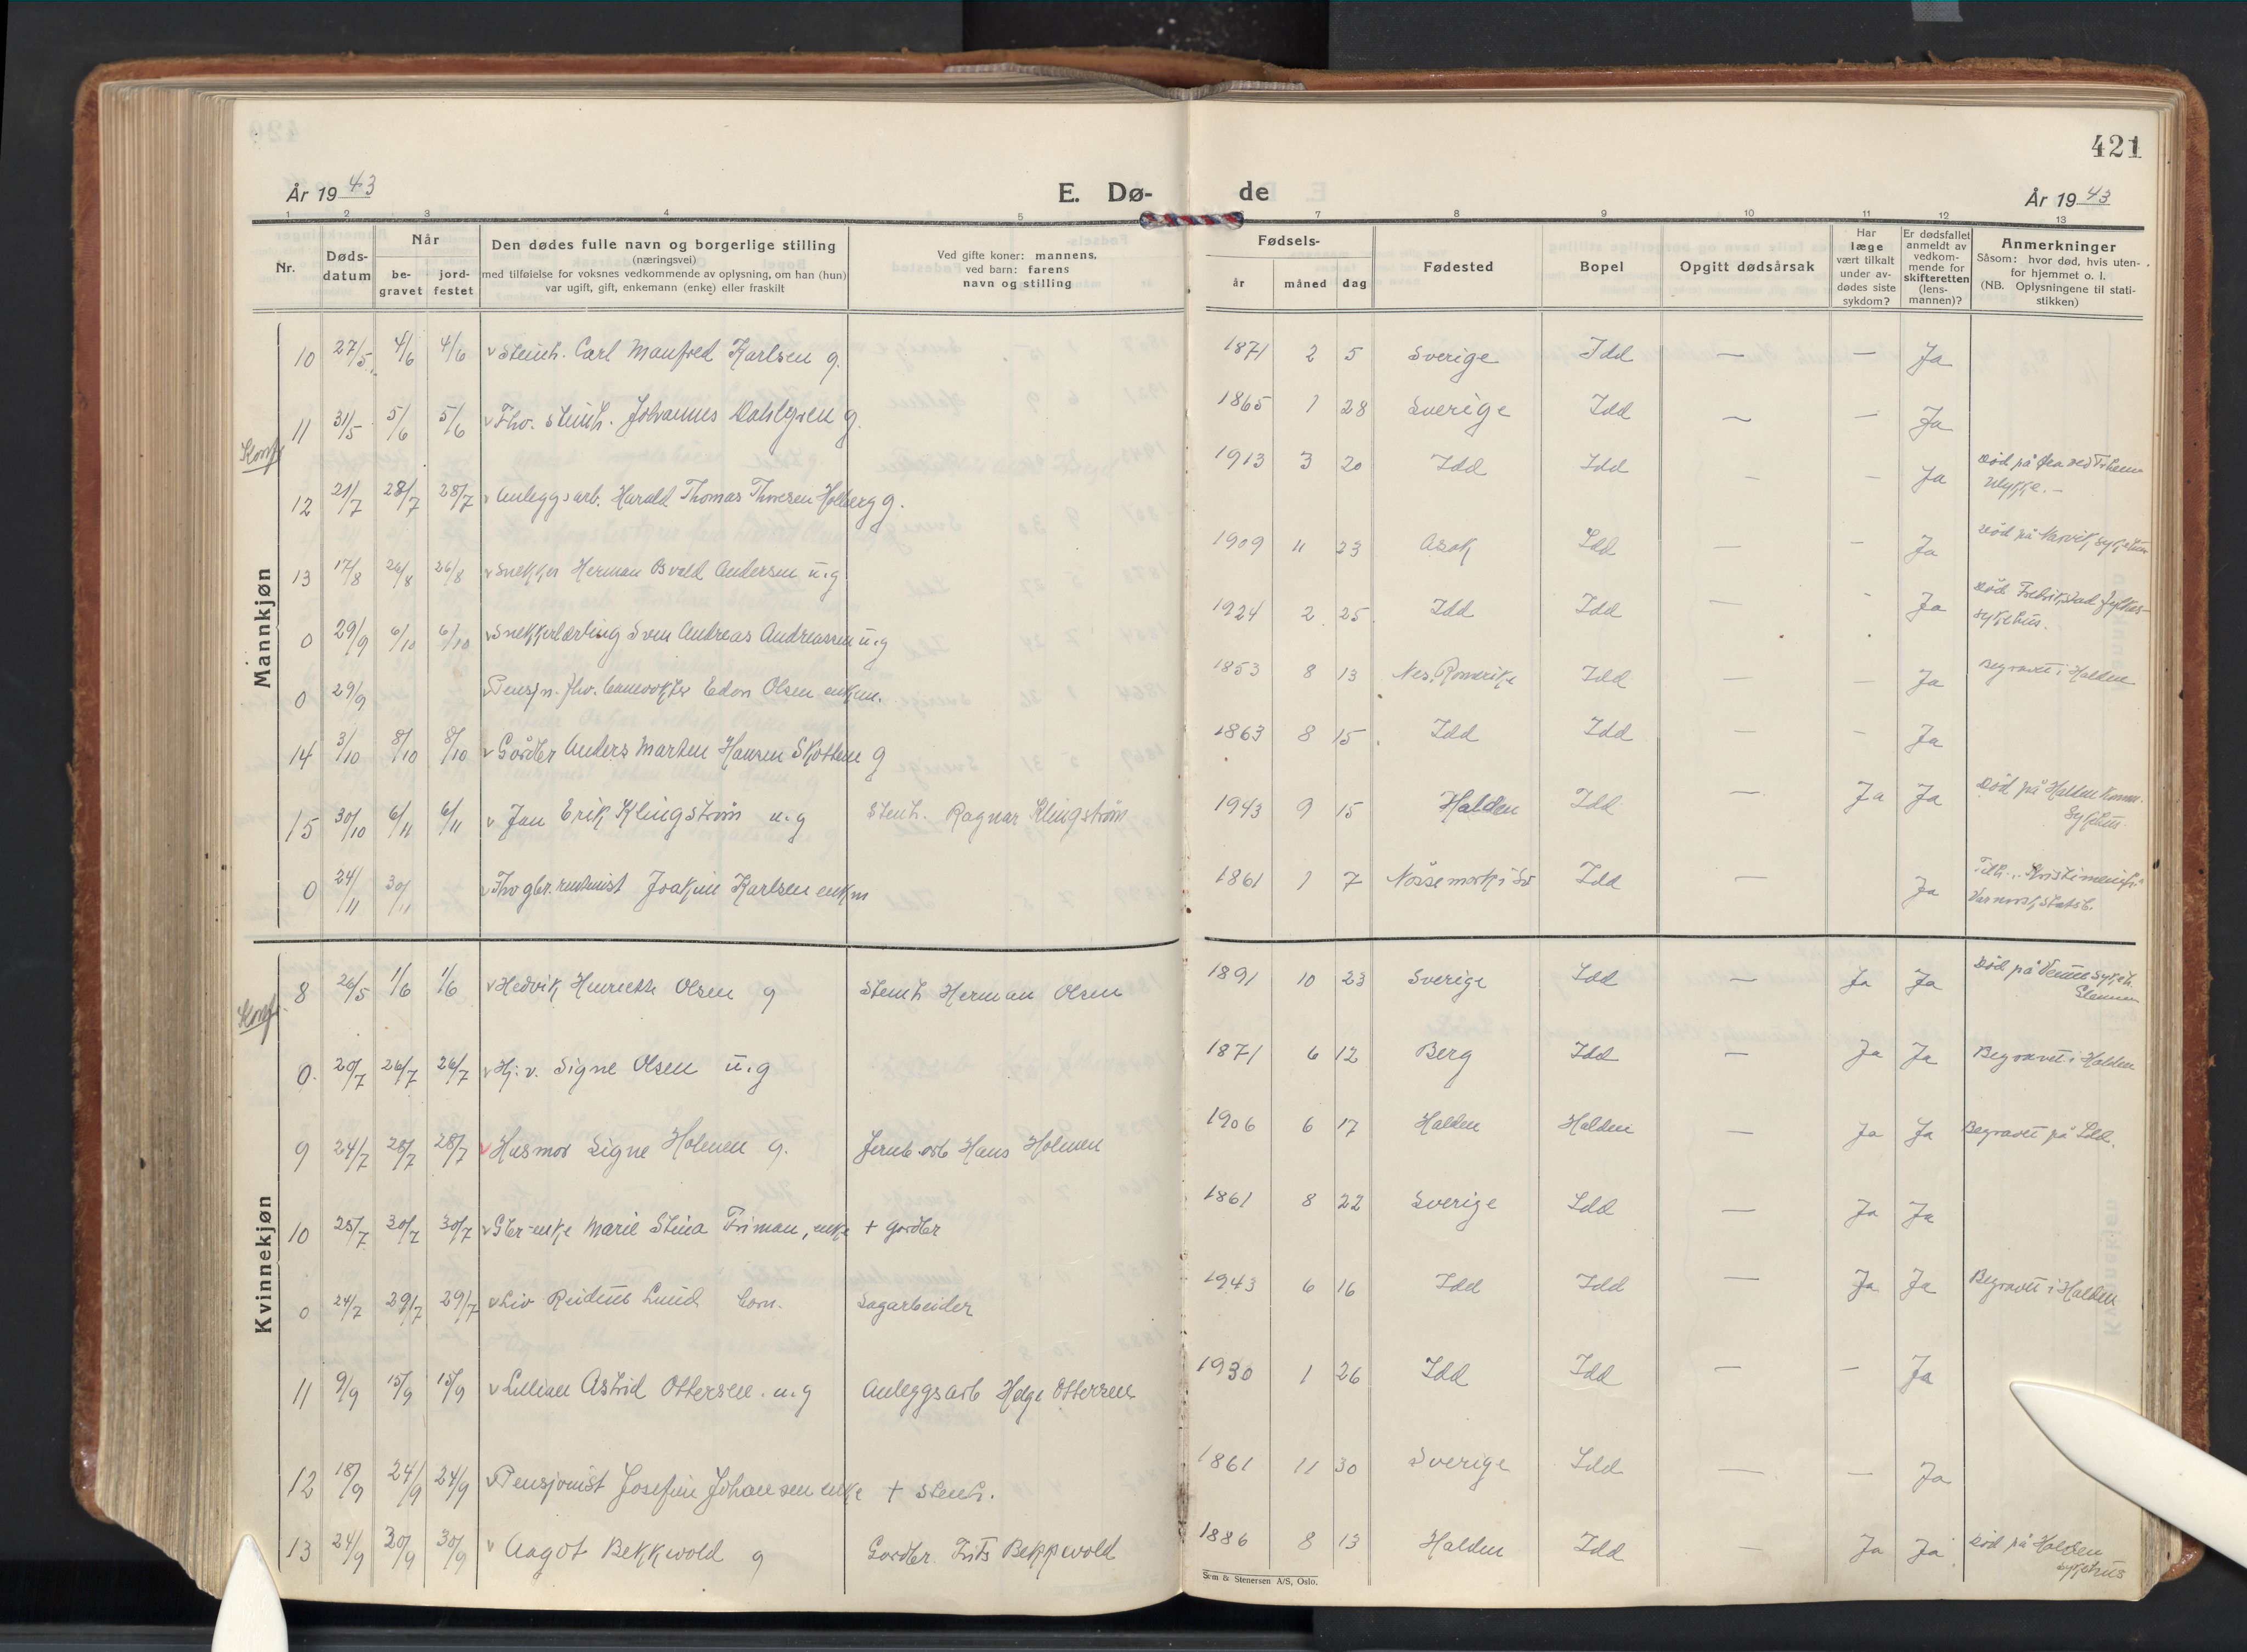 421
År 1943 E. Dø- de År 1943
1 2 3 4 5 7 8 9 10 11 12 13
Nr. Døds-datum Når be-gravet jord-festet Den dødes fulle navn og borgerlige stilling (næringsvei) med tilføielse for voksnes vedkommende av oplysning, om han (hun) var ugift, gift, enkemann (enke) eller fraskilt Ved gifte koner: mannens, ved barn: farens navn og stilling Fødsels- år måned dag Fødested Bopel Opgitt dødsårsak Har læge vært tilkalt under av-dødes siste sykdom? Er dødsfallet anmeldt av vedkom-mende for skifteretten (lens-mannen)? Anmerkninger Såsom: hvor død, hvis uten-for hjemmet o. l. (NB. Oplysningene til stati-stikken)
Mannkjøn
10 27/5 4/6 4/6 v Stenh. Carl Manfred Karlsen g. 1871 2 5 Sverige Idd — — Ja
11 31/5 5/6 5/6 v Fhv. stenh. Johannes Dahlgren g. 1865 1 28 Sverige Idd — — Ja
Konf.
12 21/7 28/7 28/7 v Anleggsarb. Harald Thomas Thoresen Holberg g. 1913 3 20 Idd Idd — — Ja Død på ved ulykke. —
13 17/8 26/8 26/8 v Snekker Herman Osvald Andersen u.g 1909 11 23 Asak Idd — — Ja Død på Narvik sykehus
0 29/9 6/10 6/10 v Snekkerlærling Sven Andreas Andreassen u.g 1924 2 25 Idd Idd — - Ja Død Fredrikstad fylkes-sykehus.
0 29/9 v Pensjn. fhv. Edon Olsen enkem. 1853 8 13 Nes, Romerike Idd — — Ja Begravet i Halden
14 3/10 8/10 8/10 v Gårdbr Anders Marten Hansen Skotten g 1863 8 15 Idd Idd — — Ja
15 30/10 6/11 6/11 v Jan Erik Klingström u.g Stenh. Ragnar Klingström 1943 9 15 Halden Idd — Ja Ja Død på Halden Komm. Sykehus
0 24/11 30/11 v Fhv gbr. rentenist Joakim Karlsen enkm 1861 1 7 Nössemark i Sv Idd — Ja
Kvinnekjøn
8 26/5 1/6 1/6 v Hedvik Henriette Olsen g Stenh Herman Olsen 1891 10 23 Sverige Idd — Ja Ja Død på Veum sykeh.
Konf.
0. 20/7 26/7 26/7 v Hj. v. Signe Olsen u.g 1871 6 12 Berg Idd — Ja Ja Begravet i Halden
9 24/7 28/7 28/7 v Husmor Signe Holmen g. Jernb. arb Hans Holmen 1906 6 17 Halden Halden — Ja Ja Begravet på Idd.
10 25/7 30/7 30/7 v Gbr-enke Marie Stina Friman, enke + gårdbr 1861 8 22 Sverige Idd — Ja Ja
0 24/7 29/7 29/7 v Liv Reidun Lund barn. Sagarbeider 1943 6 16 Idd Idd — Ja Ja Begravet i Halden
11 9/9 15/9 15/9 v Lillian Astrid Ottersen. u.g Anleggsarb Helge Ottersen 1930 1 26 Idd Idd — — Ja
12 18/9 24/9 24/9 v Pensjonist Josefine Johansen enke + stenh. 1861 11 30 Sverige Idd — — Ja
13 24/9 30/9 30/9 v Aagot Bekkvold g Gårdbr. Frits Bekkevold 1886 8 13 Halden Idd — Ja Ja Død på Halden sykehus
Sem & Stenersen A/S, Oslo.